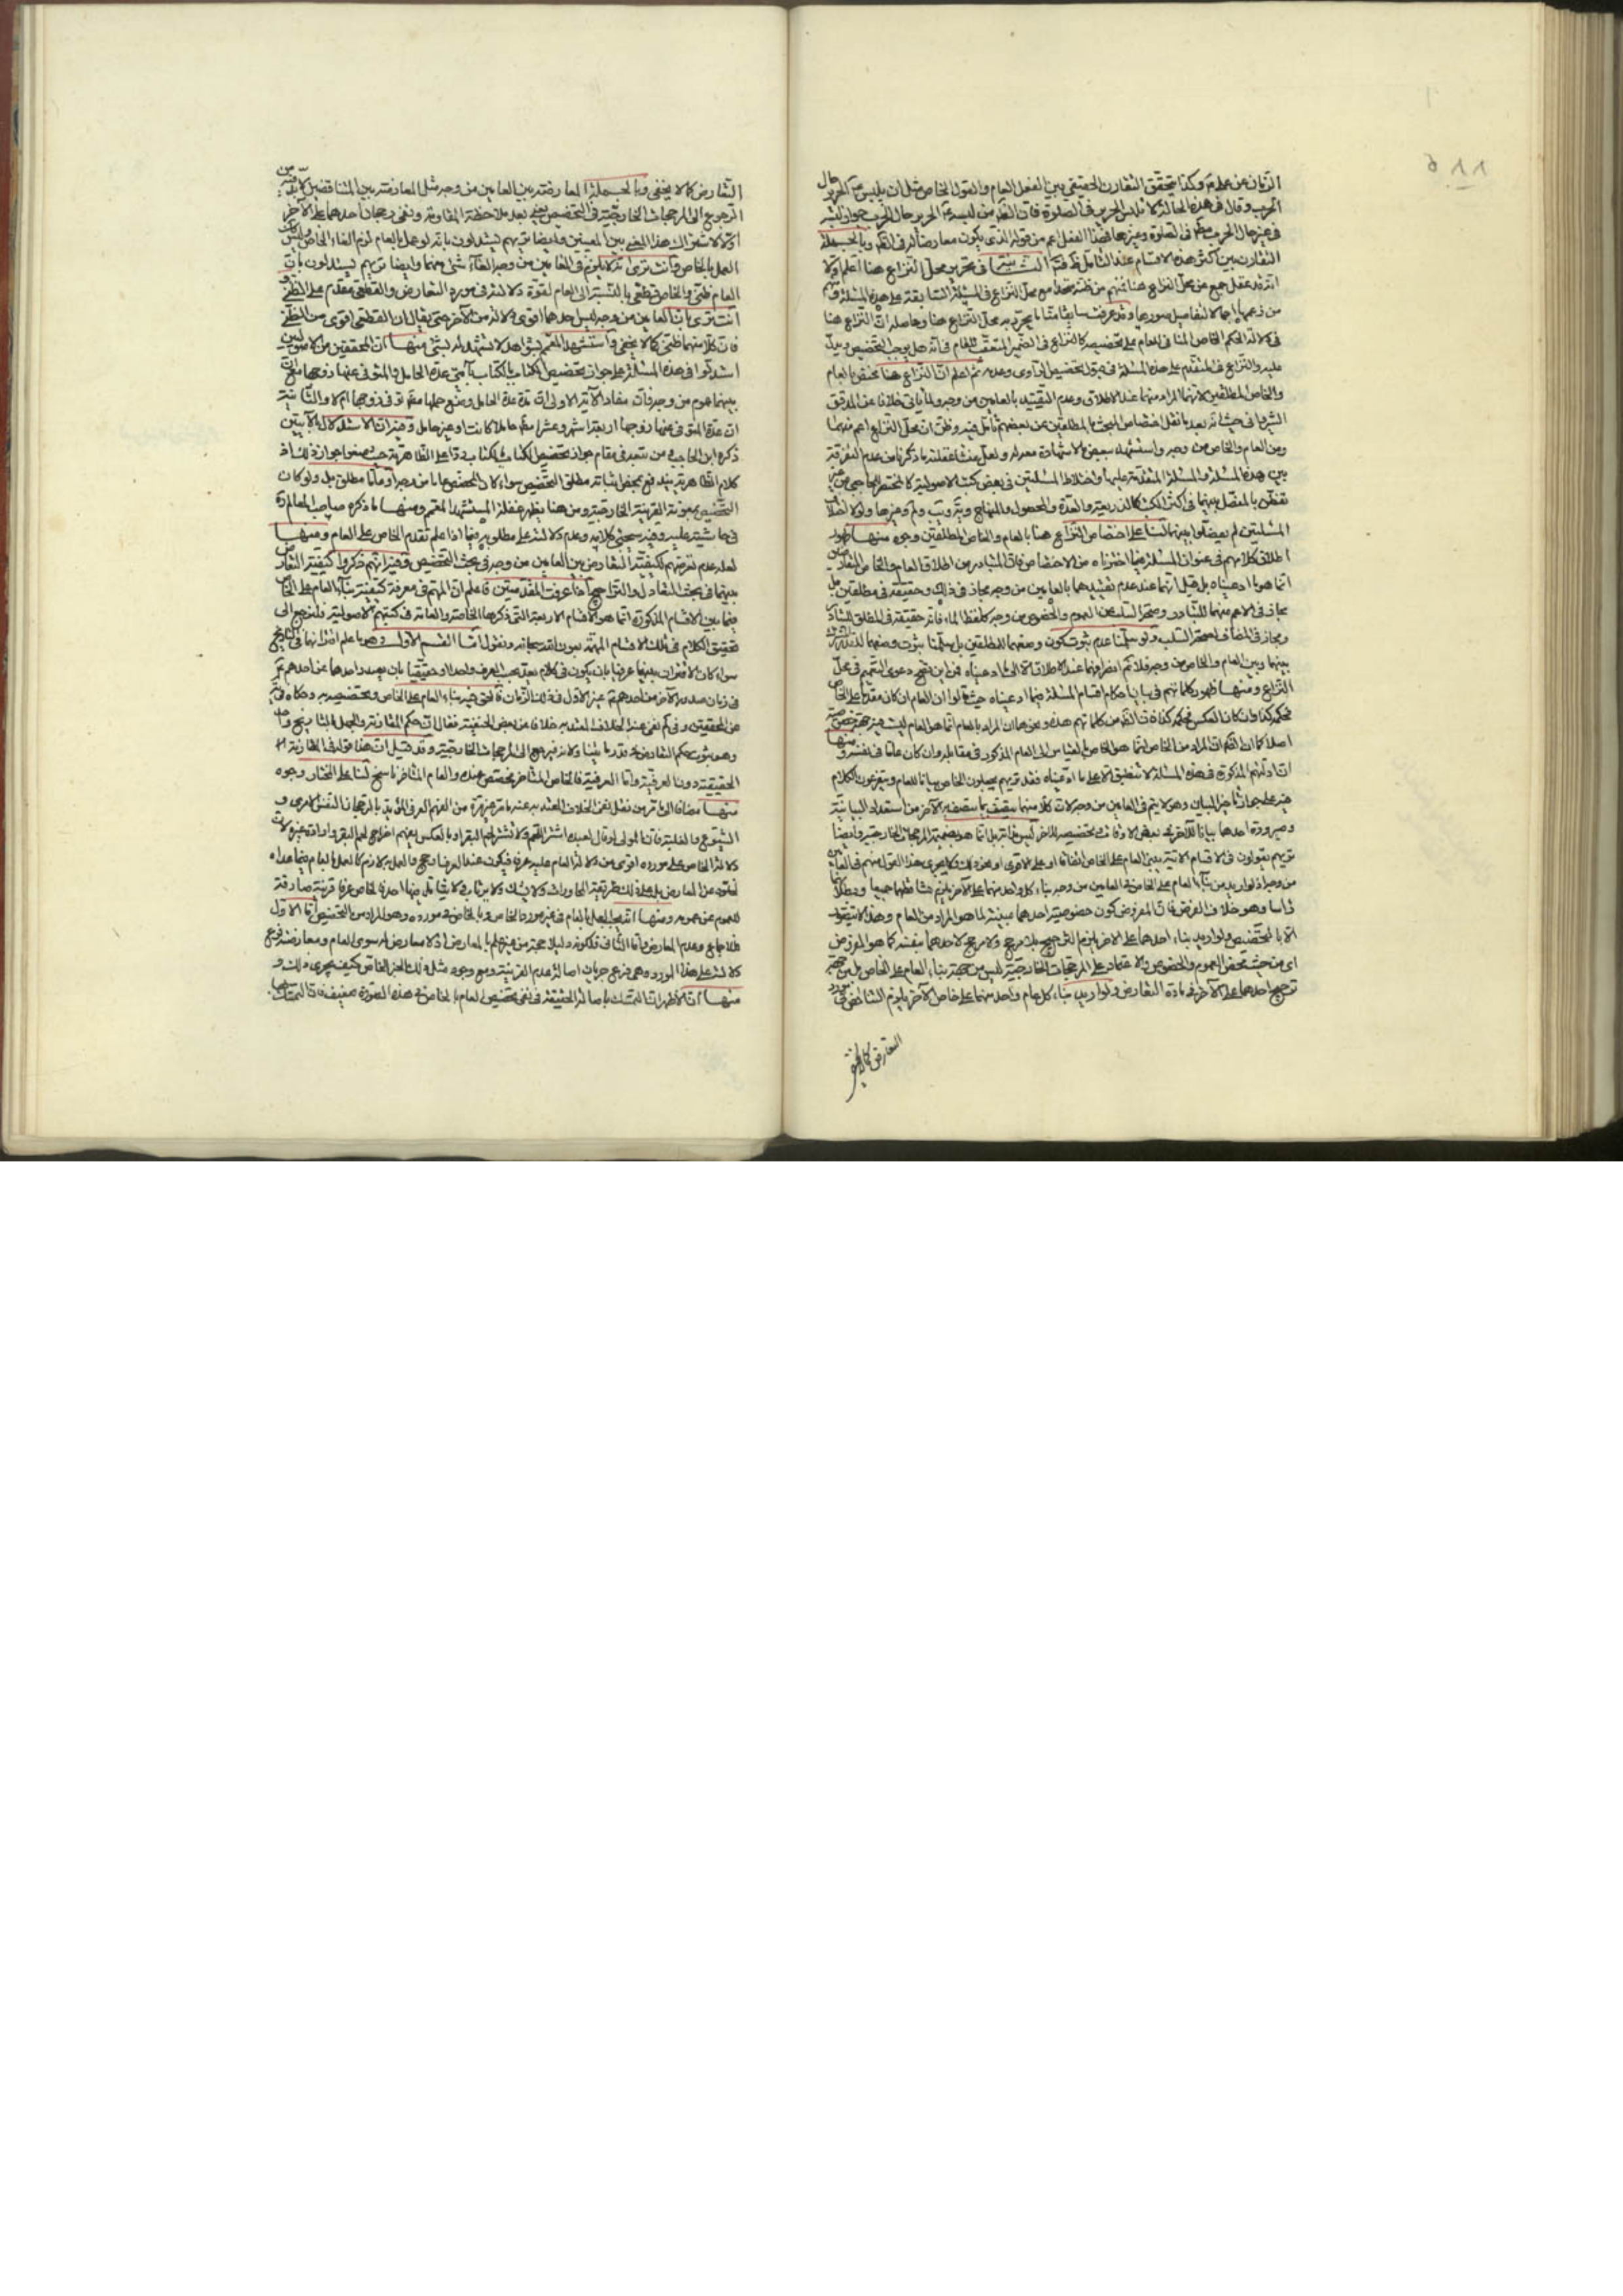 ٥٨٨
الزمان عن علم وكذا يتحقق التقارن الحقيقي بين الفعل العام والقول الخاص مثل ان يلبس الحرير حال
الحرب وقال في هذه الحالة لا تلبس الحرير في الصلوة فان
في غير حال الحرب في الصلوة وغيرها فهذا الفعل اعم من قوله الذي يكون معارضا له في وبالجملة
التقارن بين اكثر هذه الاقسام عند التامل في تحرير محل النزاع هنا اعلم اولا
انه قد غفل جمع عن محل النزاع هنا فمنهم من ظنه متحدا مع محل النزاع في المسئلة السابقة على هذه المسئلة ومنهم
من زعمها اجمالا لتفاصيل صورها وقد عرفت سابقا ما يحرر به محل النزاع هنا وحاصله ان النزاع هنا
في دلالة الحكم الخاص المنافي للعام على تخصيصه كالنزاع في الضمير المتعقب للعام في انه هل يوجب التخصيص
ثم اعلم ان النزاع هنا مختص بالعام
والخاص المطلقين لانهما المراد منهما عند الاطلاق وعدم التقييد بالعامين من وجه ولما ياتي خلافا عن المدقق
الشيرواني حيث انه بعد ما نقل اختصاص المبحث بالمطلقين عن بعضهم تأمل فيه وظن ان محل النزاع اعم منهما
ومن العام والخاص من وجه واستشهد ببعض لا شهادة معه له ولعل منشا غفلته ما ذكرنا من عدم التفرقة
بين هذه المسئلة والمسئلة المتقدمة عليها واختلاط المسئلتين في بعض كتب الاصولية كالمختصر الحاجبي
بينهما في اكثر الكتب كالذريعة والعدة والمحصول والمنهاج وغيرها ولولا اختلاف
المسئلتين لم يفصلوا بينهما لنا على اختصاص النزاع هنا بالعام والخاص المطلقين وجوه منها ظهور
اطلاق كلامهم في عنوان المسئلة فيما اخترناه من الاختصاص فان المتبادر من اطلاق العام والخاص
انما هو ما ادعيناه بل قيل انهما عند عدم تقييدهما بالعامين من وجه مجاز في ذلك وحقيقة في مطلقين
مجاز في الاعم منهما للتبادر وصحة السلب عن العموم والخصوص من وجه كلفظ الماء فانه حقيقة في المطلق
ومجاز في المضاف لصحة السلب ولو سلمنا عدم ثبوت كون وضعهما للمطلقين بل سلمنا ثبوت وضعهما
بينهما وبين العام والخاص من وجه فلا كلام انصرافهما عند الاطلاق الى ما ادعيناه فمن اين تصح دعوى التعميم في محل
النزاع ومنها ظهور كلماتهم في بيان احكام اقسام المسئلة فيما ادعيناه حيث قالوا ان العام ان كان مقدما على الخاص
فحكمه كذا وان كان العكس فحكمه كذا من كلماتهم هذه ونحوها ان المراد بالعام انما هو العام ليس غير
اصلا كما ان المراد من الخاص انما هو الخاص بالقياس الى العام المذكور في مقابله وان كان عاما في نفسه ومنها
ان ادلتهم المذكورة في هذه المسئلة لا تنطبق الا على ما ادعيناه فقد تريهم يجعلون الخاص بيانا للعام ويتفرعون الكلام
فيه على جواز تاخير البيان وهو لا يتم في العامين من وجه لان كلا منهما يتصف بما يتصف به الآخر من استعداد البيانية
وصيرورة احدهما بيانا للآخر في تخصيصه للآخر ليس بل انما هو بضميمة المرجحات الخارجية وايضا
تريهم يقولون في الاقسام الآتية يبنى العام على الخاص اتفاقا او على الاقوى او نحو ذلك ولا يجري هذا القول منهم في العامين
من وجه اذ لو اريد من بناء العام على الخاص في العامين من وجه بناء كل واحد منهما على الآخر يلزم تساقطهما جميعا وبطلانهما
راسا وهو خلاف الفرض فان المفروض كون خصوصية احدهما مبينة لما هو المراد من العام وهذا لا يتفوه
الا بالتخصيص ولو اريد بناء احدهما على الآخر يلزم الترجيح بلا مرجح ولا مرجح لاحدهما بنفسه كما هو المفروض
اي من حيث محض العموم والخصوص والاعتماد على المرجحات الخارجية ليس من جهة بناء العام على الخاص بل من جهة
ترجيح احدهما على الآخر في مادة التعارض ولو اريد بناء كل عام واحد منهما على خاص الآخر يلزم التناقض في مورد
التعارض كما لا يخفى
التعارض كما لا يخفى وبالجملة المعارضة بين العامين من وجه مثل المعارضة بين المتناقضين لا بد فيه من
الرجوع الى المرجحات الخارجية في التخصيص يعني بعد ملاحظة المقاومة ونفي رجحان احدهما على الآخر
اولا لاشتراك هذا المعنى بين المعنيين وايضا تريهم يستدلون بانه لو عمل بالعام لزم الغاء الخاص وليس
العمل بالخاص وانت ترى انه لا يلزم في العامين من وجه الغاء شيء منهما وايضا تريهم يستدلون بان
العام ظني والخاص قطعي بالنسبة الى العام لقوة دلالته في مورد التعارض والقطعي مقدم على الظني و
انت ترى بان العامين من وجه ليس احدهما اقوى دلالة من الآخر حتى يقال ان القطعي اقوى من الظني
فان كلا منهما ظني كما لا يخفى واستشهد المعمم بشواهد لا تشهد له بشيء منها ان المحققين من الاصوليين
استدلوا في هذه المسئلة على جواز تخصيص الكتاب بالكتاب بآيتي عدة الحامل والمتوفى عنها زوجها مع ان
بينهما عموم من وجه فان مفاد الآية الاولى ان مدة عدة الحامل وضع حملها سواء توفى زوجها ام لا والثانية
ان عدة المتوفى عنها زوجها اربعة اشهر وعشرا حاملا كانت او غير حامل وفيه ان الاستدلال بالآيتين
ذكره ابن الحاجب ومن تبعه في مقام جواز تخصيص الكتاب بالكتاب ردا على الظاهرية حيث منعوا جواز ذلك اذ
كلام الظاهرية يندفع بمحض اثباته مطلق التخصيص سواء كان المخصص عاما من وجه او عاما مطلق بل ولو كان
التخصيص بمعونة القرينة الخارجية ومن هنا يظهر غفلة المستشهد المعمم ومنها ما ذكره صاحب المعالم ره
في حاشيته عليه وفيه سيجئ كلامه وعدم دلالته على مطلوبه فيما اذا علم تقدم الخاص على العام ومنها
لعله عدم تعرضهم لكيفية التعارض بين العامين من وجه في بحث التخصيص وفيه انهم ذكروا كيفية التعارض
بينهما في بحث التعادل والتراجيح اذا عرفت المقدمتين فاعلم ان المهم في معرفة كيفية بناء العام على الخاص
فيما بين الاقسام المذكورة انما هو الاقسام الاربعة التي ذكرها الخاصة والعامة في كتبهم الاصولية فلنرجع الى
تحقيق الكلام في تلك الاقسام المهمة بعون الله سبحانه ونقول اما القسم الاول وهو ما علم اقترانهما في التاريخ
سواء كان الاقتران بينهما عرفيا بان يكون في كلام يعد بحسب العرف واحدا او حقيقيا بان يصدر احدهما عن احدهم ع
في زمان صدور الآخر من احدهم ع غير الاول في ذلك الزمان فالحق فيه بناء العام على الخاص وتخصيصه به وحكاه
عن المحققين ونفى عنه الخلاف المعتد به خلافا عن بعض الحنفية فقال ان حكم المقارنة والجهل بالتاريخ واحد
وهو ثبوت حكم التعارض في قدر ما يتناولانه فيرجع الى المرجحات الخارجية وقد قيل ان هذا قوله في المقارنة
الحقيقية دون العرفية واما العرفية فالخاص المتاخر مخصص عنده والعام المتاخر ناسخ لنا على المختار وجوه
منها مضافا الى ما مر من نقل نفي الخلاف المعتد به عنه ما مر غير مرة من الفهم العرفي المؤيد بالرجحان النفس الامري و
الشيوع والغلبة فان المولى لو قال لعبده اشتر اللحم ولا تشتر لحم البقر او بالعكس يفهم اخراج لحم البقر وارادة غيره لان
دلالة الخاص على مورده اقوى من دلالة العام عليه عرفا فيكون عند العرف ارجح والعمل به لازم كالعمل بالعام فيما عداه
لخلوه عن المعارض بل على ذلك طريقة المحاورات ولا يشك ولا يرتاب في لا يتامل فيها احد فالخاص عرفا قرينة صارفة
للعموم عن عمومه ومنها انه يجب العمل بالعام في غير مورد الخاص وبالخاص في مورده وهو المراد من التخصيص اما الاول
فللاجماع وعدم المعارض واما الثاني فلكونه دليلا حجة من غير علم بالمعارض اذ لا معارض له سوى العام ومعارضته فرع
دلالته على هذا المورد وهي فرع جريان اصالة عدم القرينة ومع وجود مثل ذلك الخبر الخاص كيف يجري ذلك و
منها ان الاظهر ان التمسك باصالة الحقيقة في نفي تخصيص العام بالخاص في هذه الصورة ضعيف فان التمسك بها